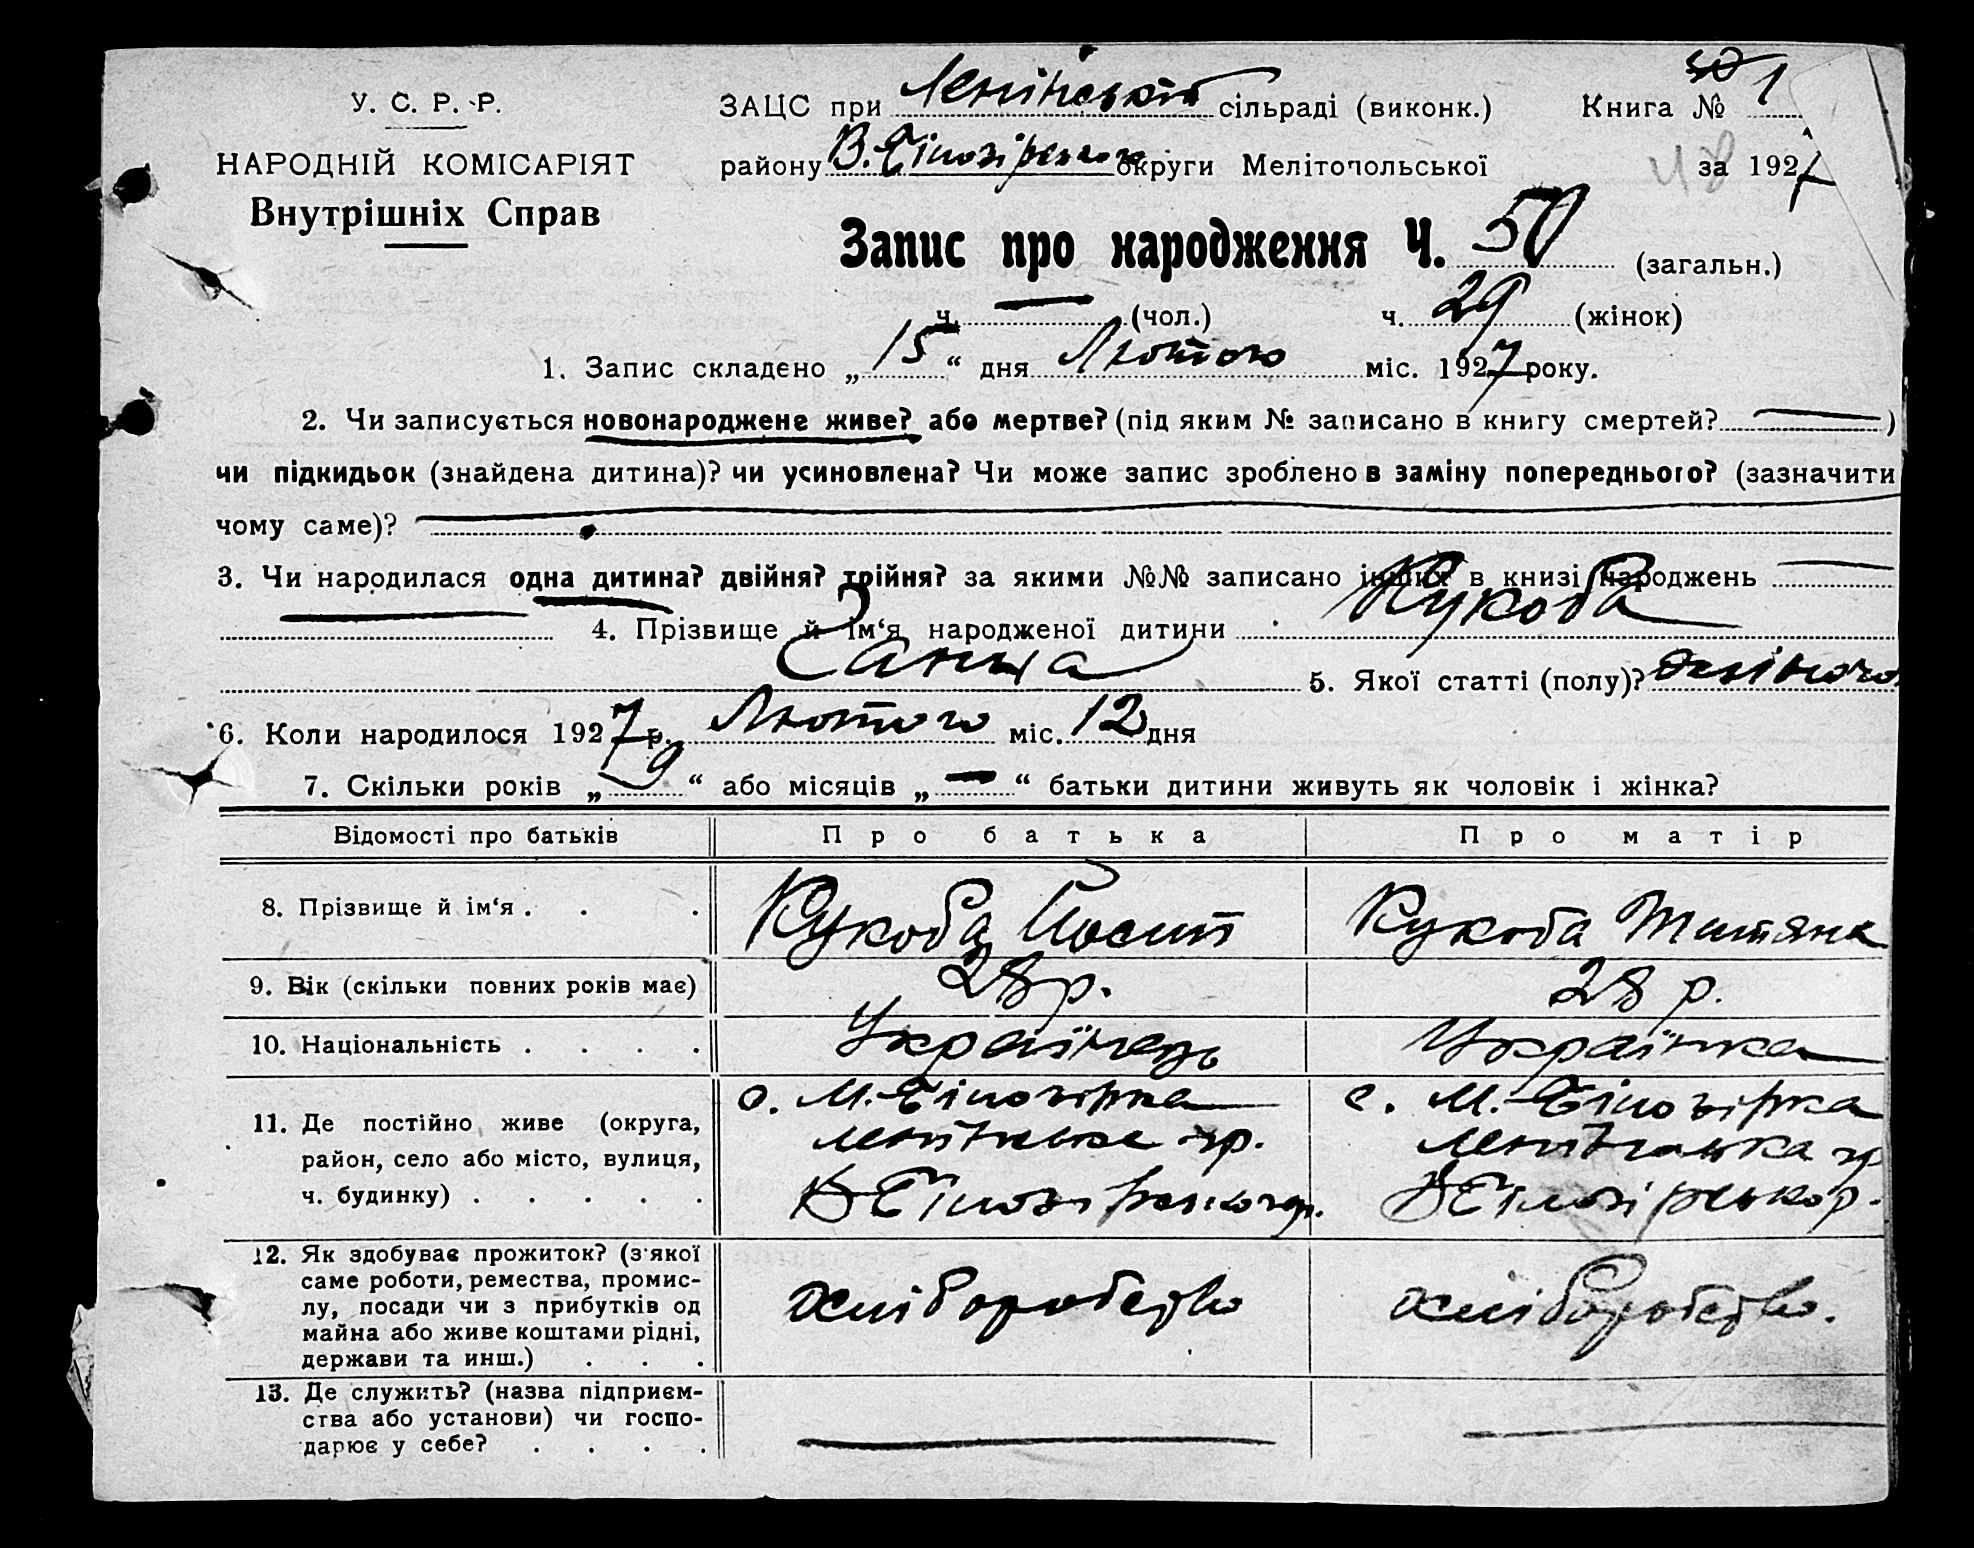 У. С. Р. Р.
НАРОДНІЙ КОМІСАРІЯТ
Внутрішніх Справ
ЗАЦС при Ленінській сільраді (виконк.) Книга № 50 1
району В. Білозірського округи Мелітопольської 48 за 1927
Запис про народження Ч. 50 (загальн.)
ч. — (чол.) ч. 29 (жінок)
1. Запис складено „15“ дня Лютого міс. 1927 року.
2. Чи записується новонароджене живе? або мертве? (під яким № записано в книгу смертей? — )
чи підкидьок (знайдена дитина)? чи усиновлена? Чи може запис зроблено в заміну попереднього? (зазначити
чому саме)? —
3. Чи народилася одна дитина? двійня? трійня? за якими №№ записано інших в книзі народжень —
— 4. Прізвище й ім‘я народженої дитини Кукоба
Ганна 5. Якої статті (полу)? жіночої
6. Коли народилося 1927 р. Лютого міс. 12 дня
7. Скільки років „9“ або місяців „—“ батьки дитини живуть як чоловік і жінка?
Відомості про батьків Про батька Про матір
8. Прізвище й ім‘я . . . Кукоба Йосип Кукоба Татяна
9. Вік (скільки повних років має) 28 р. 28 р.
10. Національність . . . . Українець Українка
11. Де постійно живе (округа, с. М. Білозірка с. М. Білозірка
район, село або місто, вулиця, Ленінське гр. Ленінська гр
ч. будинку) . . . . . В Білозірського р. В Білозірськ р.
12. Як здобуває прожиток? (з'якої
саме роботи, ремества, промис-
лу, посади чи з прибутків од хліборобство хліборобство.
майна або живе коштами рідні,
держави та инш.) . . .
13. Де служить? (назва підприєм-
ства або установи) чи госпо-
дарює у себе? . . . . — —